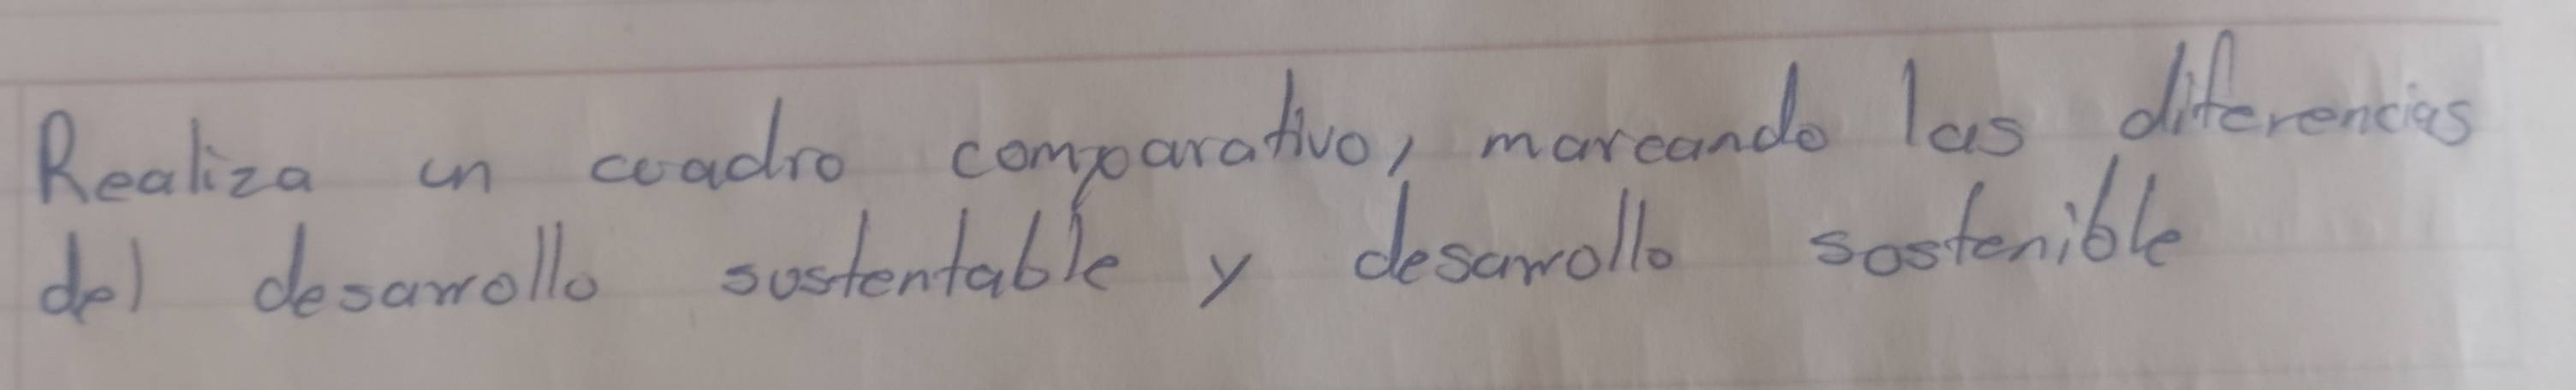 Realiza un cuadro comparativo, marcando las diferencias
del desarrollo sustentable y desarrollo sostenible